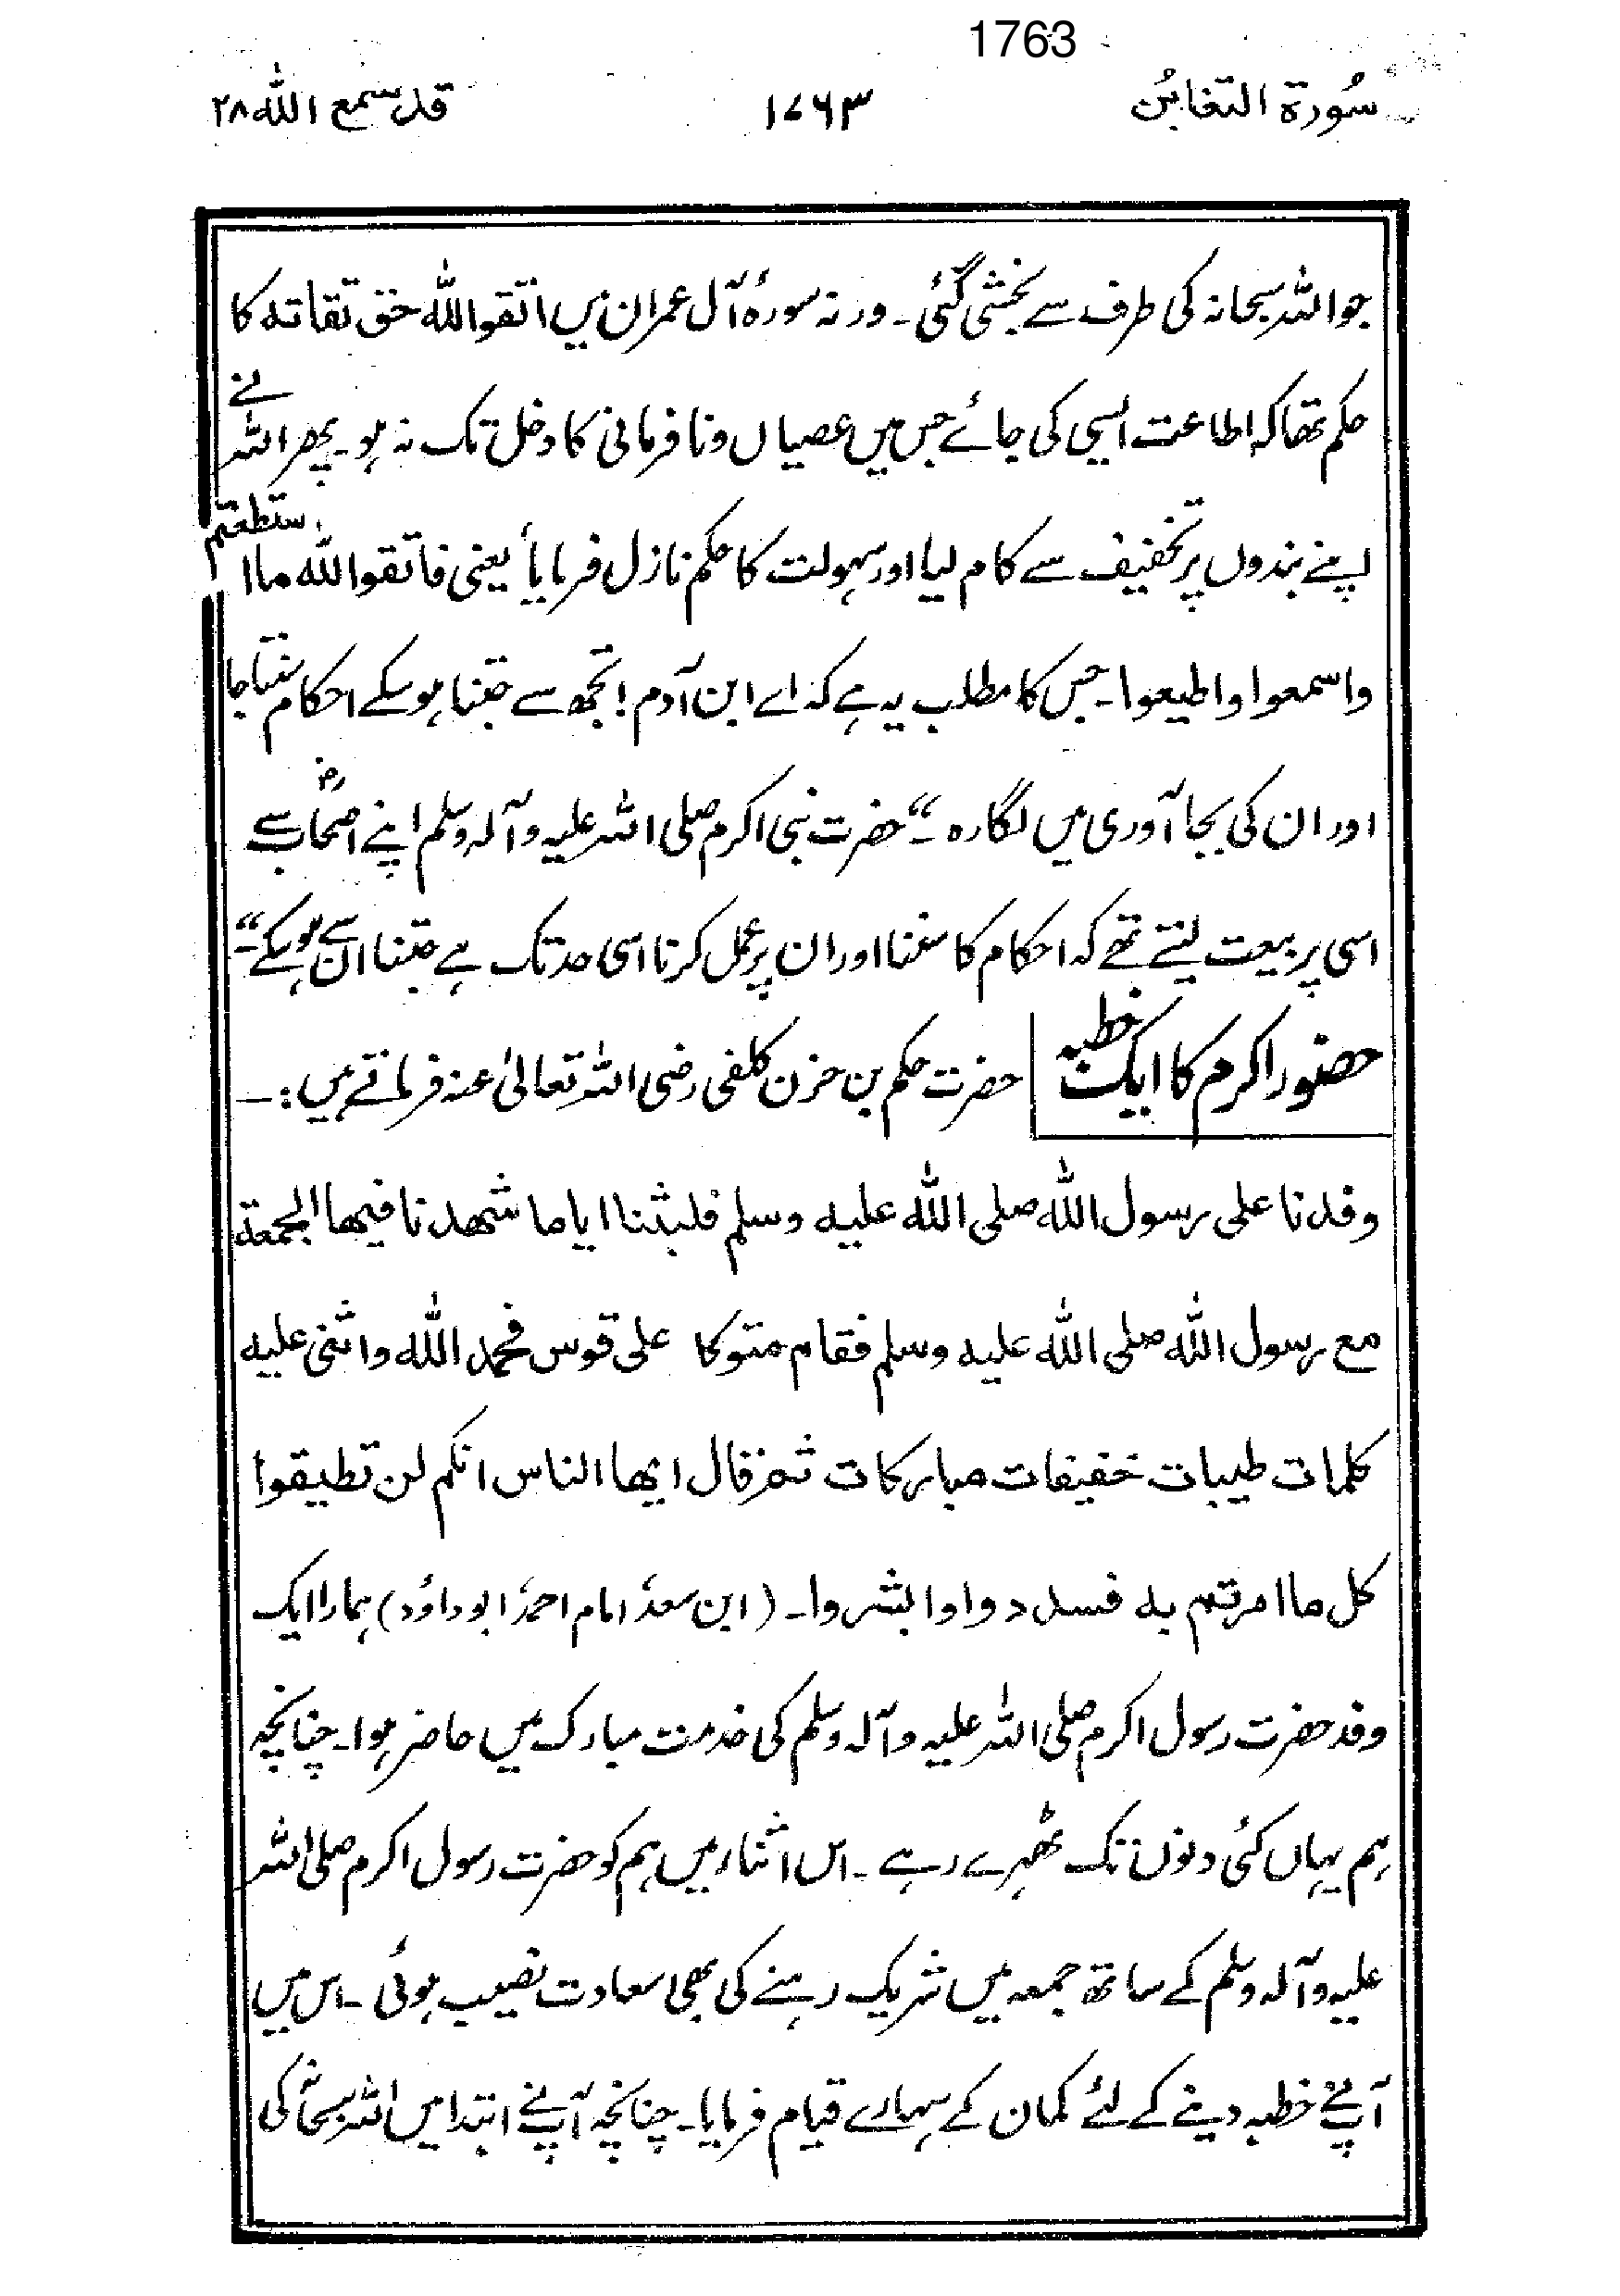 1763
سُورة التغابن ۱۷۶۳ قد سمع الله ۲۸
جو اللہ سبحانہ کی طرف سے بخشی گئی ۔ ورنہ سورۂ آل عمران میں اتقوا الله حق تقاته کا
حکم تھا کہ اطاعت ایسی کی جائے جس میں عصیاں و نافرمانی کا دخل تک نہ ہو ۔ پھر اللہ نے
اپنے بندوں پر تخفیف سے کام لیا اور سہولت کا حکم نازل فرمایا یعنی فاتقوا الله ما استطعتم
واسمعوا واطیعوا ۔ جس کا مطلب یہ ہے کہ اے ابن آدم ! تجھ سے جتنا ہو سکے احکام سنتا جا
اور ان کی بجا آوری میں لگا رہ ۔“ حضرت نبی اکرم صلی اللہ علیہ وآلہ وسلم اپنے اصحابؓ سے
اسی پر بیعت لیتے تھے کہ احکام کا سننا اور ان پر عمل کرنا اسی حد تک ہے جتنا ان سے ہو سکے ۔“
حضور اکرم کا ایک خطبہ حضرت حکم بن حزن کلفی رضی اللہ تعالیٰ عنہ فرماتے ہیں :۔
وفدنا علی رسول الله صلی الله علیه وسلم فلبثنا ایاما شهدنا فیها الجمعة
مع رسول الله صلی الله علیه وسلم فقام متوکا علی قوس فحمد الله واثنی علیه
کلمات طیبات خفیفات مبارکات ثم قال ایها الناس انکم لن تطیقوا
کل ما امرتم به فسددوا وابشروا ۔ (ابن سعدؒ امام احمدؒ ابوداؤد) ہمارا ایک
وفد حضرت رسول اکرم صلی اللہ علیہ وآلہ وسلم کی خدمت مبارک میں حاضر ہوا ۔ چنانچہ
ہم یہاں کئی دنوں تک ٹھہرے رہے ۔ اس اثناء میں ہم کو حضرت رسول اکرم صلی اللہ
علیہ وآلہ وسلم کے ساتھ جمعہ میں شریک رہنے کی بھی سعادت نصیب ہوئی ۔ اس میں
آپؐنے خطبہ دینے کے لئے کمان کے سہارے قیام فرمایا ۔ چنانچہ آپنے ابتدا میں اللہ سبحانہ کی